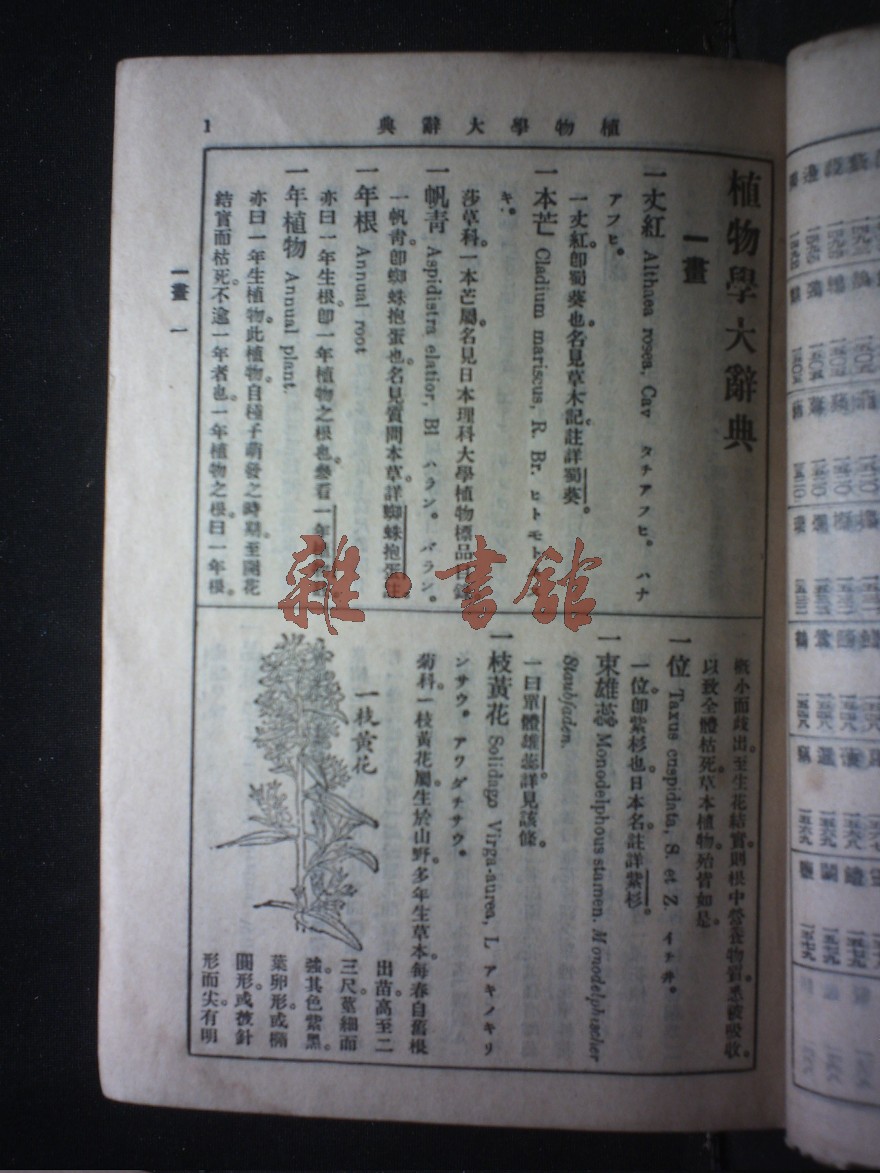 植物學大辭典
1
植物學大辭典
一畫
一丈紅 Althaea rosea, Cav タチアフヒ。ハナ
アフヒ。
一丈紅卽蜀葵也。名見草木記。註詳蜀葵。
一本芒 Cladium mariscus, R. Br. ヒトモト
キ。
莎草科。一本芒屬。名見日本理科大學植物標品目錄。
一帆靑 Aspidistra elatior, Bl ハラン。バラン。
一帆靑。卽蜘蛛抱蛋也。名見質問本草。詳蜘蛛抱蛋註。
一年根 Annual root
亦曰一年生根。卽一年植物之根也。參看一年植物。
一年植物 Annual plant.
亦曰一年生植物。此植物。自種子萌發之時期。至開花
結實而枯死。不逾一年者也。一年植物之根。曰一年根。
概小而歧出。至生花結實。則根中營養物質。悉被吸收。
以致全體枯死。草本植物。殆皆如是。
一位 Taxus cuspidata, S. et Z. イチ井。
一位。卽紫杉也。日本名。註詳紫杉。
一束雄蕊 Monodelphous stamen. Monodelphischer
Staubfaden.
一曰單體雄蕊。詳見該條。
一枝黃花 Solidago Virga-aurea, L アキノキリ
ンサウ。アワダチサウ。
菊科。一枝黃花屬。生於山野。多年生草本。每春自舊根
出苗。高至二
三尺。莖細而
強。其色紫黑。
葉卵形。或橢
圓形。或披針
形而尖。有明
一枝黃花
一畫 一
雜·書館